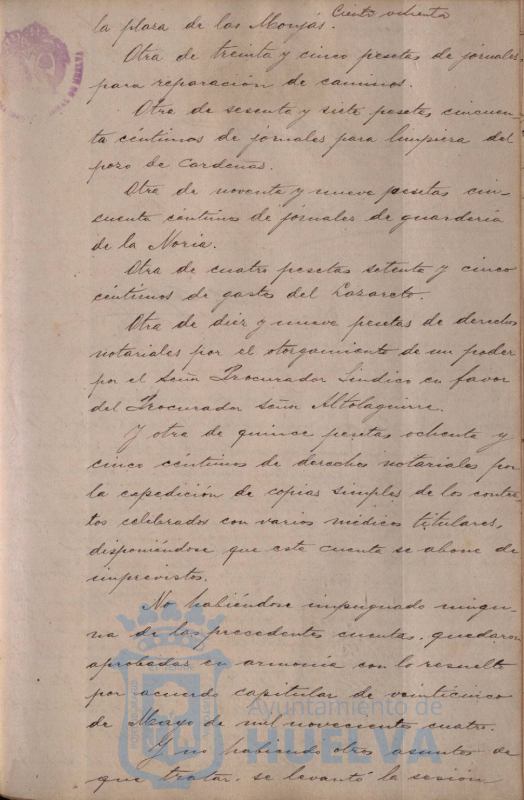 Ciento ochenta
la plaza de las Monjas.
Otra de treinta y cinco pesetas de jornales
para reparación de caminos.
Otra de sesenta y siete pesetas cincuen-
ta céntimos de jornales para limpieza del
pozo de Cardeñas.
Otra de noventa y nueve pesetas cin-
cuenta céntimos de jornales de guardería
de la Noria.
Otra de cuatro pesetas setenta y cinco
céntimos de gastos del Lazareto.
Otra de diez y nueve pesetas de derechos
notariales por el otorgamiento de un poder
por el Señor Procurador Síndico en favor
del Procurador Señor Altolaguirre.
Y otra de quince pesetas ochenta y
cinco céntimos de derechos notariales por
la expedición de copias simples de los contra-
tos celebrados con varios médicos titulares,
disponiéndose que esta cuenta se abone de
imprevistos.
No habiéndose impugnado ningu-
na de las precedentes cuentas, quedaron
aprobadas en armonía con lo resuelto
por acuerdo capitular de veinticinco
de Mayo de mil novecientos cuatro.
Y no habiendo otros asuntos de
que tratar, se levantó la sesión
Ayuntamiento de
HUELVA